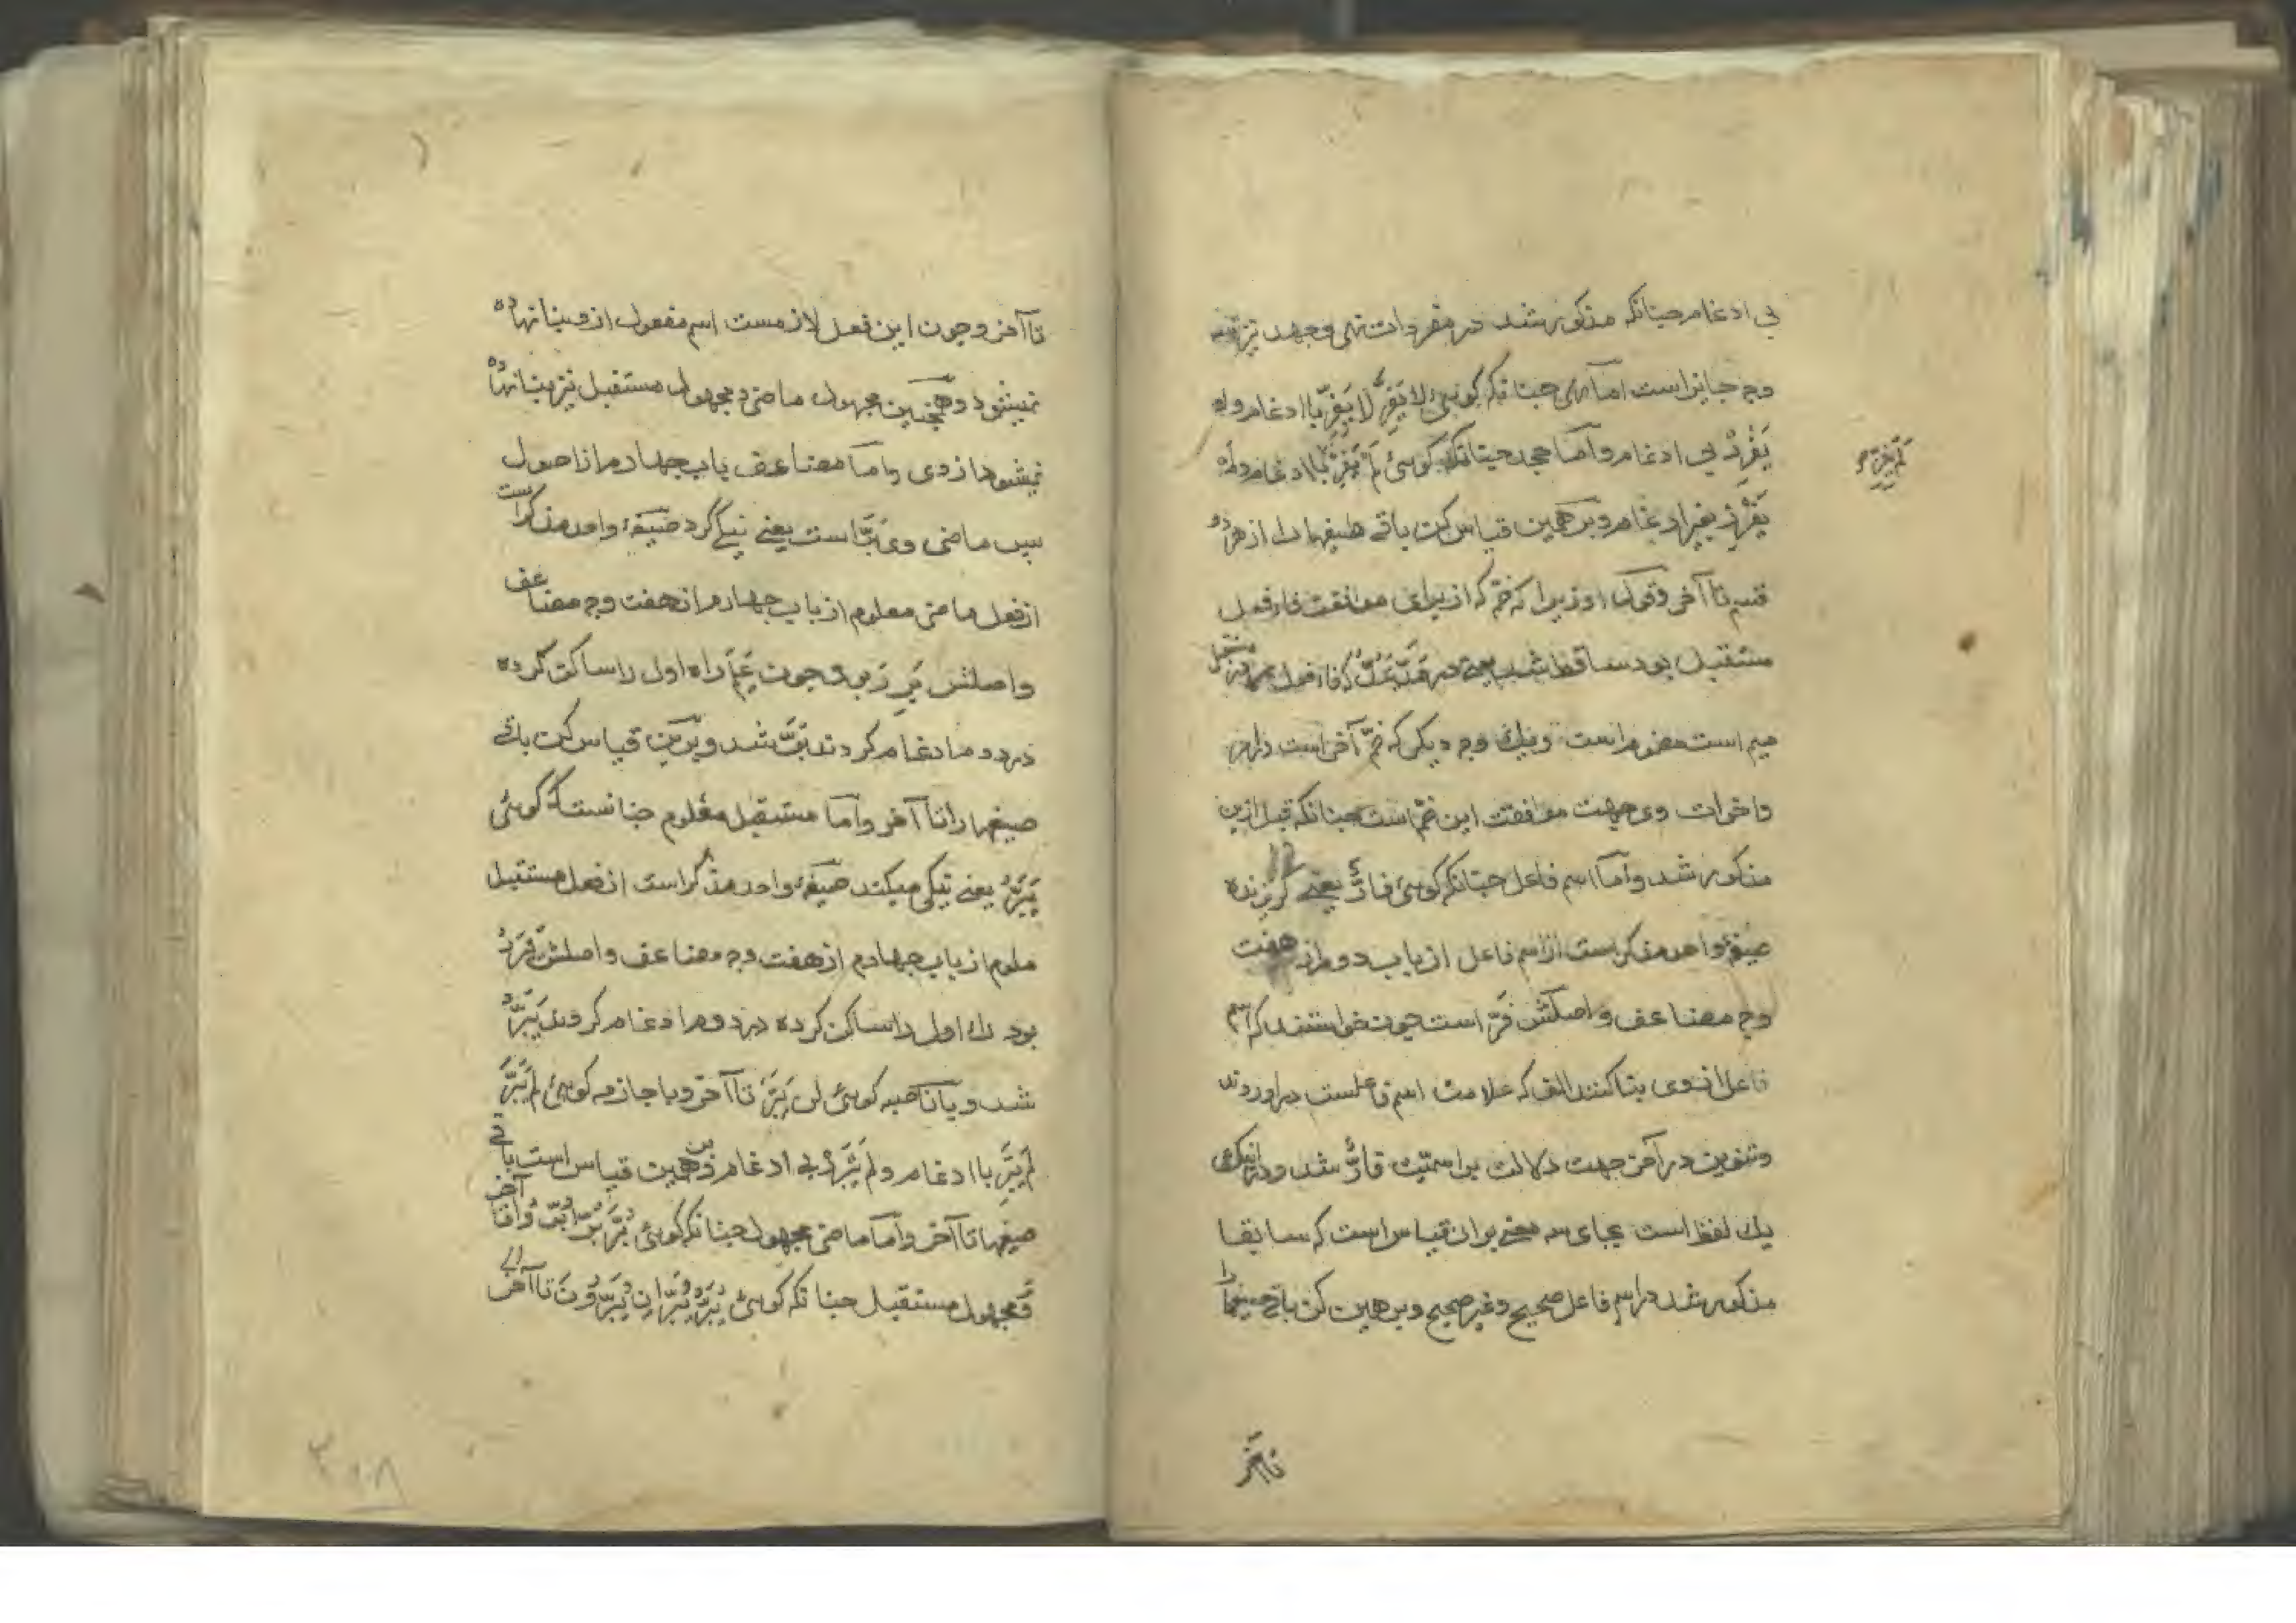 بی ادغام چنانکه مذکور شد در مفردات نهی وجهد نیز
وجه جایز است اما نهی چنانکه کوئی لا یَفِرَّ لا یَفِرِّ باادغام ولا
یَفْرِرْ بی ادغام واما جحد چنانکه کوئی لَمْ یَفِرَّ باادغام ولم
یَفْرِرْ بغیر ادغام وبر همین قیاس کن باقی صیغها را از هر دو
قسم تا آخر وقول او زیرا که ضمّ که از برای موافقت فاء فعل
مستقبل بود ساقط شد یعنی در مَدَّ یَمُدُّ که فاء فعل
میم است مضموم است وینک وجه دیکر که ضمّ آخر است
واخوات وی جهت موافقت این ضمّ است چنانکه قبل ازین
مذکور شد واما اسم فاعل چنانکه کوئی فارٌّ یعنی کریزنده
صیغهٔ واحد مذکر است از اسم فاعل از باب دوم از هفت
وجه مضاعف واصلش فَرّ است چون خواستند که اسم
فاعل از وی بنا کنند الف که علامت اسم فاعلست در اوردند
وتنوین در آخر جهت دلالت بر اسمیّت فارٌّ شد
یك لفظ است بجای سه معنی بر ان قیاس است که سابقا
مذکور شد در اسم فاعل صحیح وغیر صحیح وبر همین کن باقی صیغها را
تا آخر
تا آخر وچون این فعل لازمست اسم مفعول از وی بنا نهاده
نمیشود وهمچنین مجهول ماضی ومجهول مستقبل نیز بنا نهاده
نمیشود از وی واما مضاعف باب چهارم از اصول
پس ماضی وی بَرَّ است یعنی نیکی کرد صیغهٔ واحد مذکر است
از فعل ماضی معلوم از باب چهارم از هفت وجه مضاعف
واصلش بَرِرَ بود راه اول را ساکن کرده
در دوم ادغام کردند بَرَّ شد وبرین قیاس کن باقی
صیغها را تا آخر واما مستقبل معلوم چنانست که کوئی
یَبَرُّ یعنی نیکی میکند صیغهٔ واحد مذکر است از فعل مستقبل
معلوم از باب چهارم از هفت وجه مضاعف واصلش یَبْرَرُ
بود راء اول را ساکن کرده در دوم ادغام کردند یَبَرُّ
شد وبا ناصبه کوئی لن یَبَرَّ تا آخر وبا جازمه کوئی لم یَبَرَّ
لم یَبَرِّ باادغام ولم یَبْرَرْ بی ادغام وبر همین قیاس است باقی
صیغها تا آخر واما ماضی مجهول چنانکه کوئی بُرَّ بُرَّا بُرُّوا تا آخر
ومجهول مستقبل چنانکه کوئی یُبَرُّ یُبَرَّانِ یُبَرُّونَ تا آخر
۲۰۸